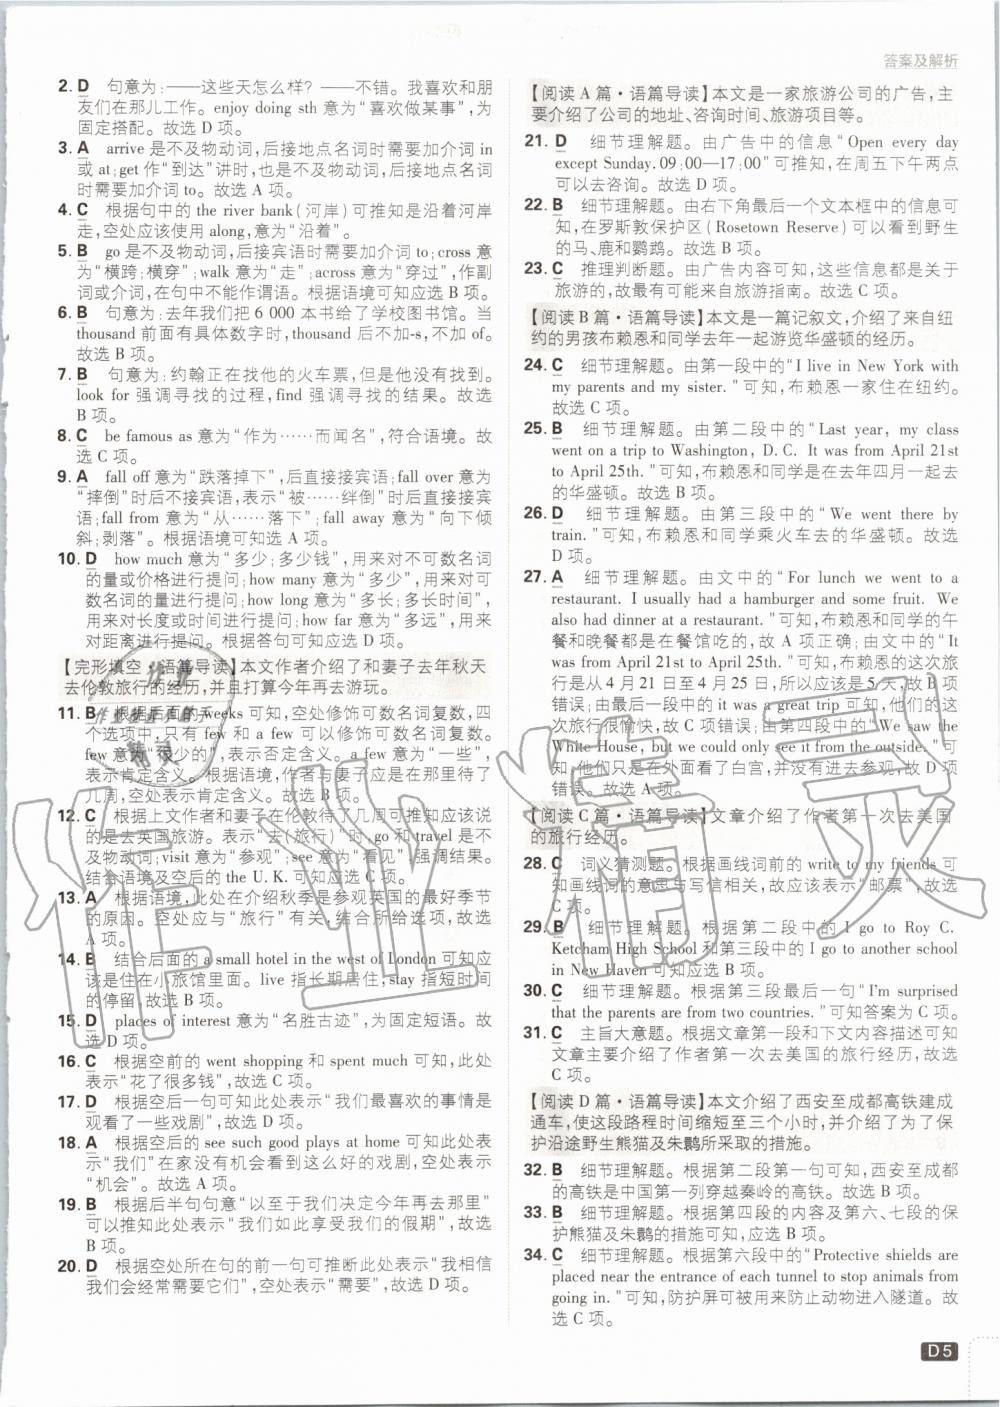 答案及解析
2. D 句意为：——这些天怎么样？——不错。我喜欢和朋
友们在那儿工作。enjoy doing sth 意为“喜欢做某事”，为
固定搭配。故选 D 项。
3. A arrive 是不及物动词，后接地点名词时需要加介词 in
或 at；get 作“到达”讲时，也是不及物动词，后接地点名词
时需要加介词 to。故选 A 项。
4. C 根据句中的 the river bank（河岸）可推知是沿着河岸
走，空处应该使用 along，意为“沿着”。
5. B go 是不及物动词，后接宾语时需要加介词 to；cross 意
为“横跨；横穿”；walk 意为“走”；across 意为“穿过”，作副
词或介词，在句中不能作谓语。根据语境可知应选 B 项。
6. B 句意为：去年我们把 6 000 本书给了学校图书馆。当
thousand 前面有具体数字时，thousand 后不加-s，不加 of。
故选 B 项。
7. B 句意为：约翰正在找他的火车票，但是他没有找到。
look for 强调寻找的过程，find 强调寻找的结果。故选
B 项。
8. C be famous as 意为“作为……而闻名”，符合语境。故
选 C 项。
9. A fall off 意为“跌落掉下”，后直接接宾语；fall over 意为
“摔倒”时后不接宾语，表示“被……绊倒”时后直接接宾
语；fall from 意为“从……落下”；fall away 意为“向下倾
斜；剥落”。根据语境可知选 A 项。
10. D how much 意为“多少；多少钱”，用来对不可数名词
的量或价格进行提问；how many 意为“多少”，用来对可
数名词的量进行提问；how long 意为“多长；多长时间”，
用来对长度或时间进行提问；how far 意为“多远”，用来
对距离进行提问。根据答句可知应选 D 项。
【完形填空·语篇导读】本文作者介绍了和妻子去年秋天
去伦敦旅行的经历，并且打算今年再去游玩。
11. B 根据后面的 weeks 可知，空处修饰可数名词复数，四
个选项中，只有 few 和 a few 可以修饰可数名词复数。
few 意为“很少的”，表示否定含义。a few 意为“一些”，
表示肯定含义。根据语境，作者与妻子应是在那里待了
几周，空处表示肯定含义。故选 B 项。
12. C 根据上文作者和妻子在伦敦待了几周可知应该说的
是去英国旅游。表示“去（旅行）”时，go 和 travel 是不
及物动词；visit 意为“参观”；see 意为“看见”，强调结果。
结合语境及空后的 the U. K. 可知选 C 项。
13. A 根据语境，此处在介绍秋季是参观英国的最好季节
的原因。空处应与“旅行”有关，结合所给选项，故选
A 项。
14. B 结合后面的 a small hotel in the west of London 可知应
该是住在小旅馆里面。live 指长期居住，stay 指短时间
的停留，故选 B 项。
15. D places of interest 意为“名胜古迹”，为固定短语。故
选 D 项。
16. C 根据空前的 went shopping 和 spent much 可知，此处
表示“花了很多钱”，故选 C 项。
17. D 根据空后一句可知此处表示“我们最喜欢的事情是
观看了一些戏剧”，故选 D 项。
18. A 根据空后的 see such good plays at home 可知此处表
示“我们”在家没有机会看到这么好的戏剧，空处表示
“机会”。故选 A 项。
19. B 根据后半句句意“以至于我们决定今年再去那里”
可以推知此处表示“我们如此享受我们的假期”，故选
B 项。
20. D 根据空处所在句的前一句可推断此处表示“我相信
我们会经常需要它们”，空处表示“需要”，故选 D 项。
【阅读 A 篇·语篇导读】本文是一家旅游公司的广告，主
要介绍了公司的地址、咨询时间、旅游项目等。
21. D 细节理解题。由广告中的信息“Open every day
except Sunday. 09:00—17:00”可推知，在周五下午两点
可以去咨询。故选 D 项。
22. B 细节理解题。由右下角最后一个文本框中的信息可
知，在罗斯敦保护区（Rosetown Reserve）可以看到野生
的马、鹿和鹦鹉。故选 B 项。
23. C 推理判断题。由广告内容可知，这些信息都是关于
旅游的，故最有可能来自旅游指南。故选 C 项。
【阅读 B 篇·语篇导读】本文是一篇记叙文，介绍了来自纽
约的男孩布赖恩和同学去年一起游览华盛顿的经历。
24. C 细节理解题。由第一段中的“I live in New York with
my parents and my sister.”可知，布赖恩一家住在纽约。
故选 C 项。
25. B 细节理解题。由第二段中的“Last year, my class
went on a trip to Washington, D. C. It was from April 21st
to April 25th.”可知，布赖恩和同学是在去年四月一起去
的华盛顿。故选 B 项。
26. D 细节理解题。由第三段中的“We went there by
train.”可知，布赖恩和同学乘火车去的华盛顿。故选
D 项。
27. A 细节理解题。由文中的“For lunch we went to a
restaurant. I usually had a hamburger and some fruit. We
also had dinner at a restaurant.”可知，布赖恩和同学的午
餐和晚餐都是在餐馆吃的，故 A 项正确；由文中的“It
was from April 21st to April 25th.”可知，布赖恩的这次旅
行是从 4 月 21 日至 4 月 25 日，所以应该是 5 天，故 B 项
错误；由最后一段中的 it was a great trip 可知，他们的这
次旅行很愉快，故 C 项错误；由第四段中的“We saw the
White House, but we could only see it from the outside.”可
知，他们只是在外面看了白宫，并没有进去参观，故 D 项
错误。故选 A 项。
【阅读 C 篇·语篇导读】文章介绍了作者第一次去美国
的旅行经历。
28. C 词义猜测题。根据画线词前的 write to my friends 可
知画线词的意思与写信相关，故应该表示“邮票”，故选
C 项。
29. B 细节理解题。根据第二段中的 I go to Roy C.
Ketcham High School 和第三段中的 I go to another school
in New Haven 可知应选 B 项。
30. C 细节理解题。根据第三段最后一句“I'm surprised
that the parents are from two countries.”可知答案为 C 项。
31. C 主旨大意题。根据文章第一段和下文内容描述可知
文章主要介绍了作者第一次去美国的旅行经历，故选
C 项。
【阅读 D 篇·语篇导读】本文介绍了西安至成都高铁建成
通车，使这段路程时间缩短至三个小时，并介绍了为了保
护沿途野生熊猫及朱鹮所采取的措施。
32. B 细节理解题。根据第二段第一句可知，西安至成都
的高铁是中国第一列穿越秦岭的高铁。故选 B 项。
33. B 细节理解题。根据第四段的内容及第六、七段的保
护熊猫及朱鹮的措施可知，应选 B 项。
34. C 细节理解题。根据第六段中的“Protective shields are
placed near the entrance of each tunnel to stop animals from
going in.”可知，防护屏可被用来防止动物进入隧道。故
选 C 项。
D5
作业精灵